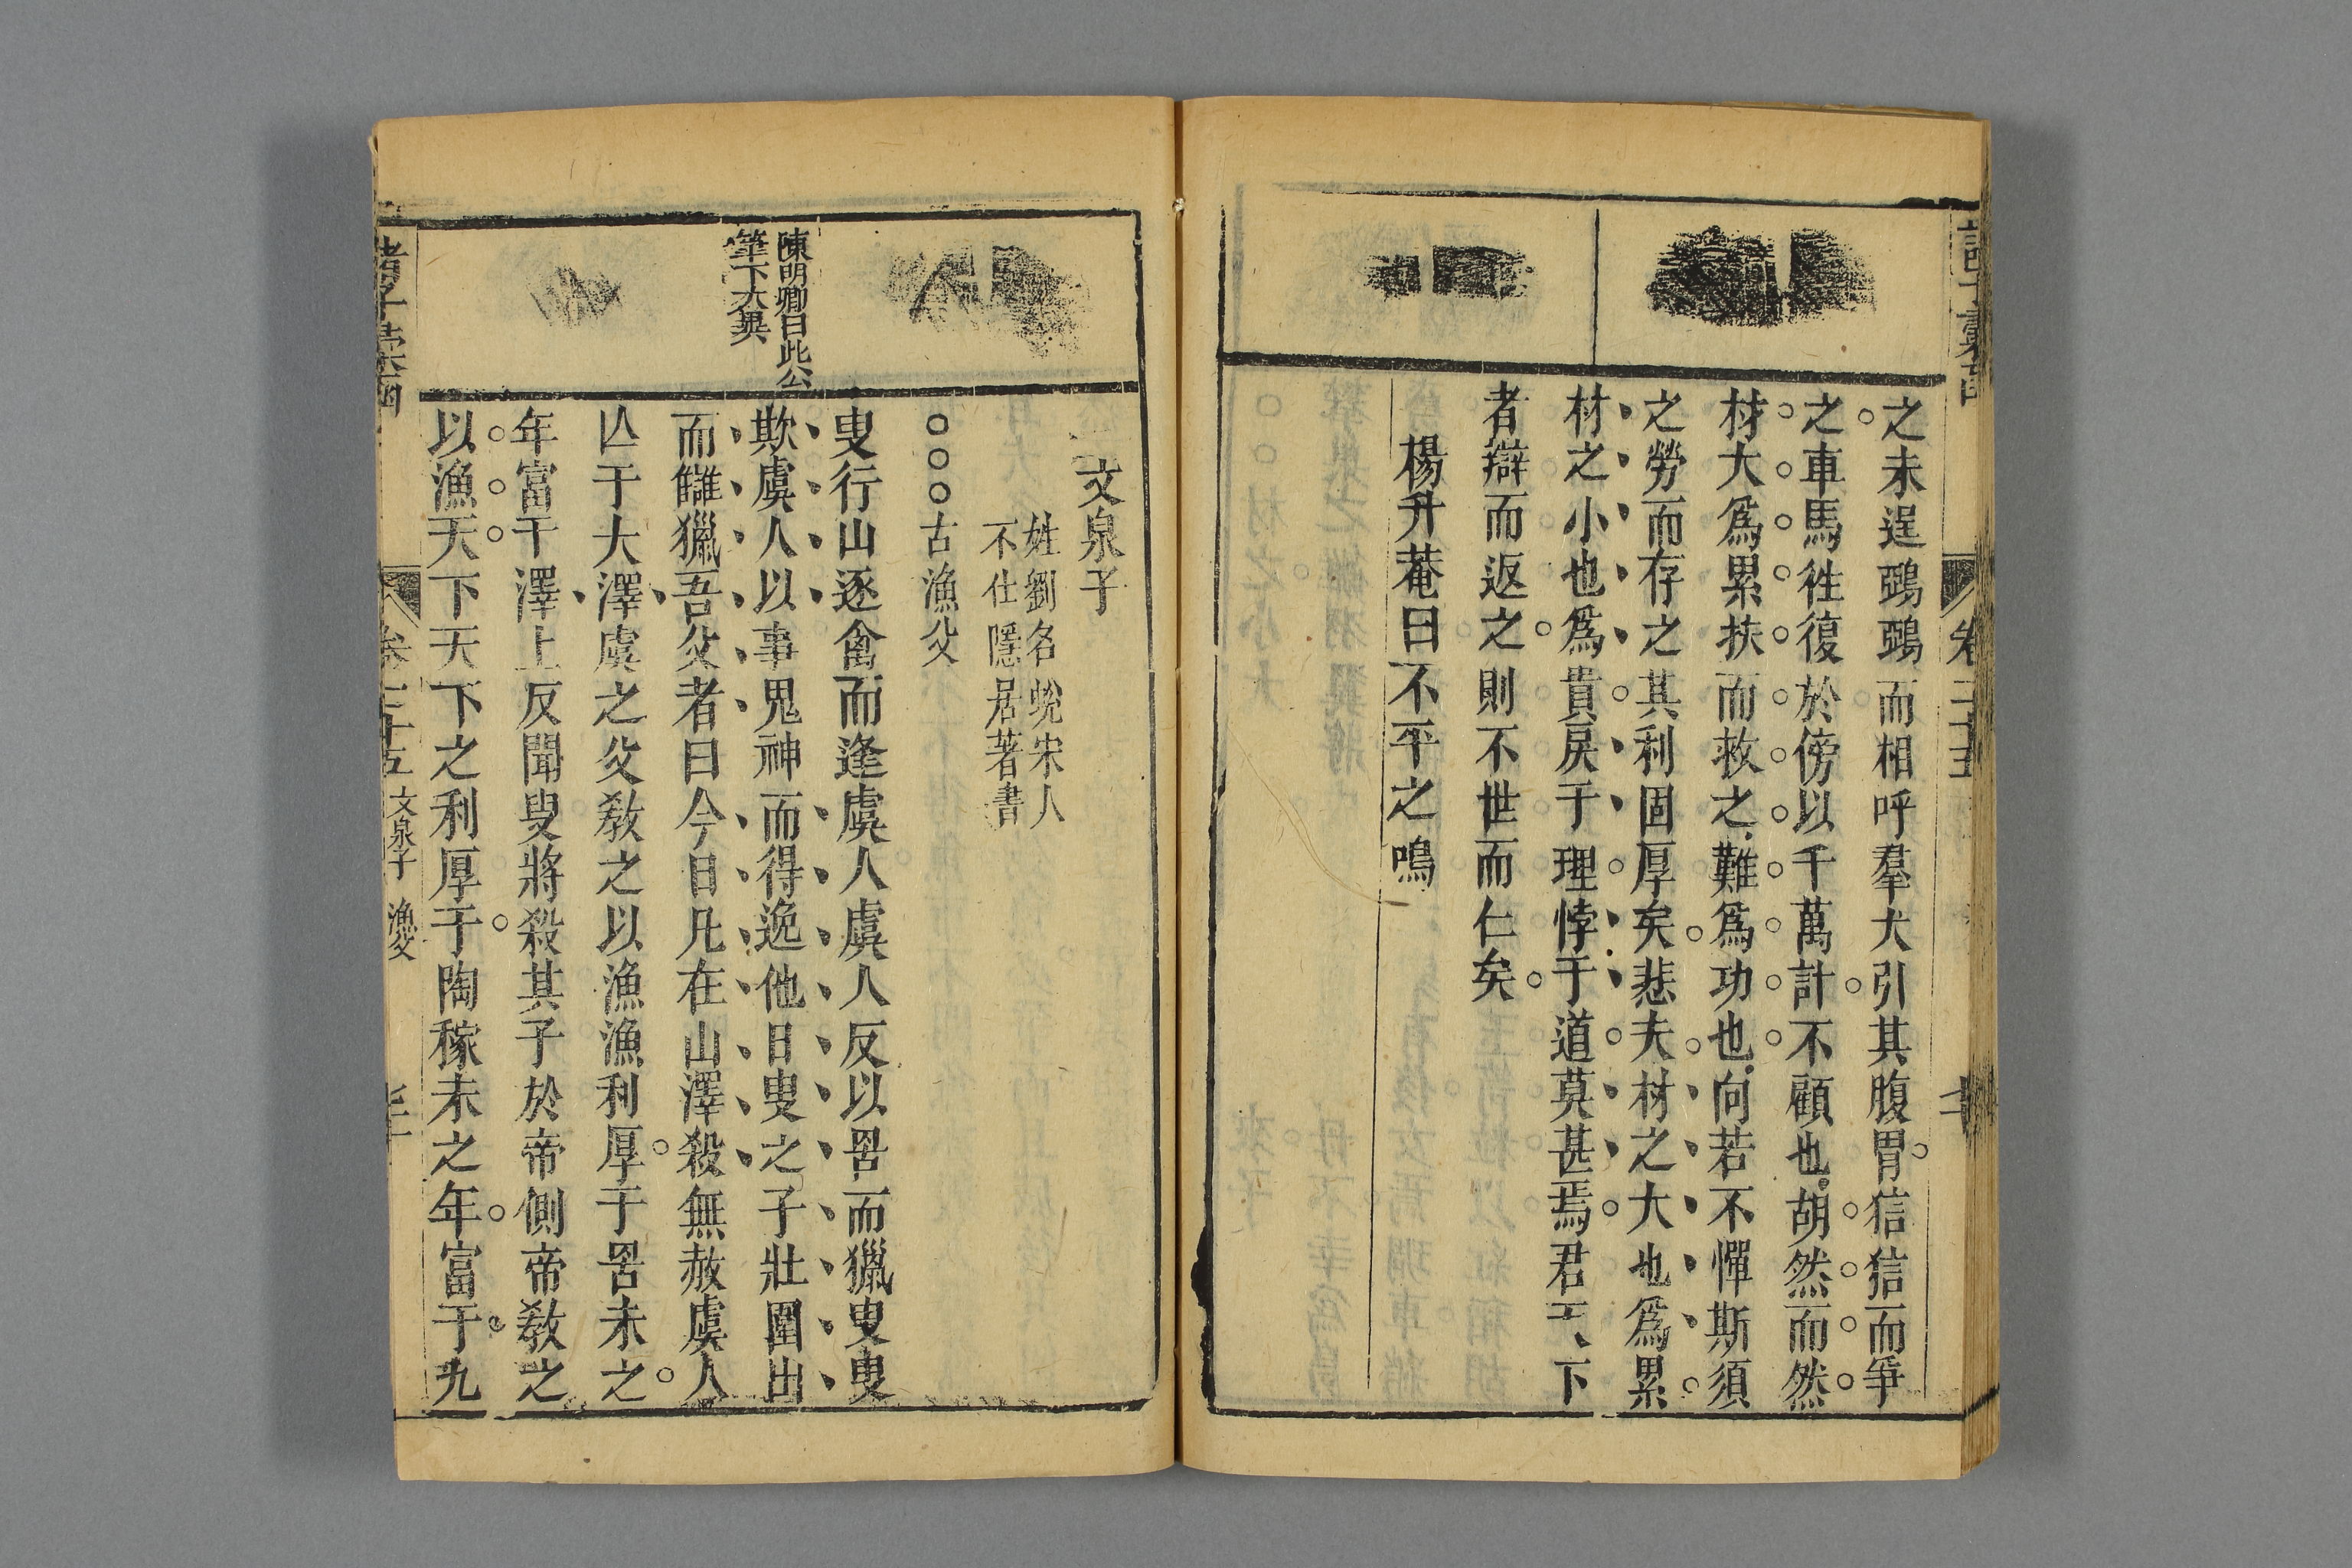 之未逞鵶鵶而相呼羣犬引其腹胃狺狺而爭
之車馬徃復於傍以千萬計不顧也胡然而然
材大爲累扶而救之難爲功也向若不憚斯須
之勞而存之其利固厚矣悲夫材之大也爲累
材之小也爲貴戾于理悖于道莫甚焉君王下
者辯而返之則不世而仁矣
楊升菴曰不平之鳴
卷二十五
文泉子
姓劉名蛻宋人
不仕隱居著書
○○○古漁父
陳明卿曰此公
筆下大異
叟行山逐禽而逢虞人虞人反以罟而獵叟叟
欺虞人以事鬼神而得逸他日叟之子壯圍出
而讎獵吾父者曰今日凡在山澤殺無赦虞人
亾于大澤虞之父敎之以漁漁利厚于罟未之
年富干澤上反聞叟將殺其子於帝側帝敎之
以漁天下天下之利厚于陶稼未之年富于九
卷二十五 文泉子 漁父